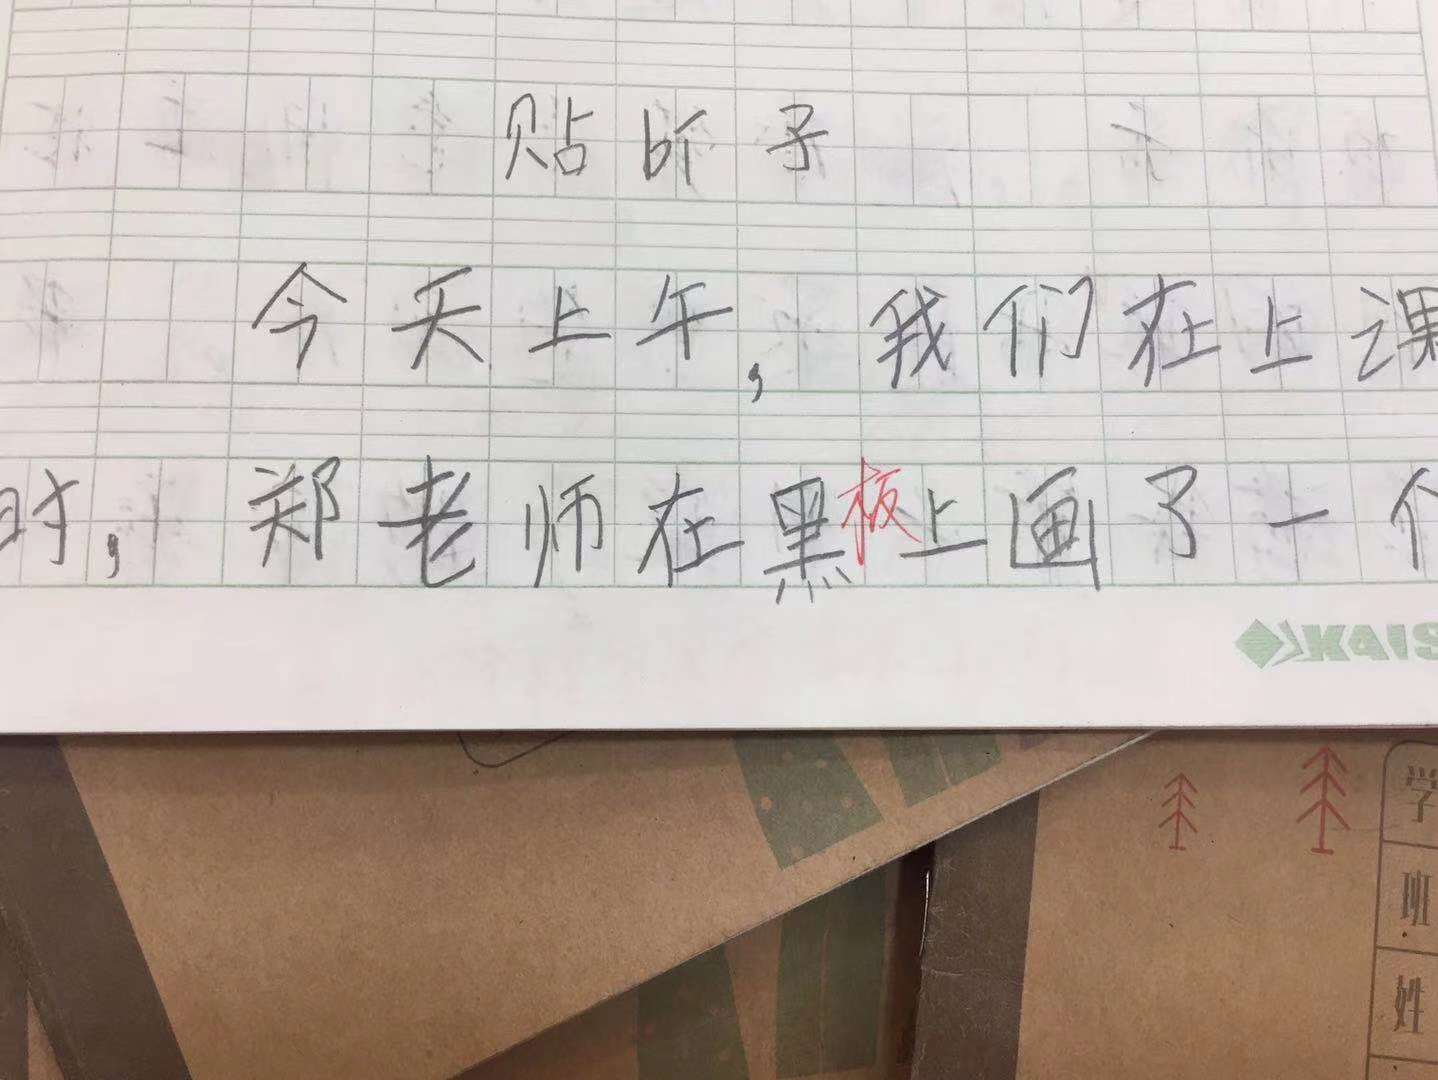 贴 子
今天上午，我们在上课
时，郑老师在黑板上画了一个
KAIS
学
班
姓